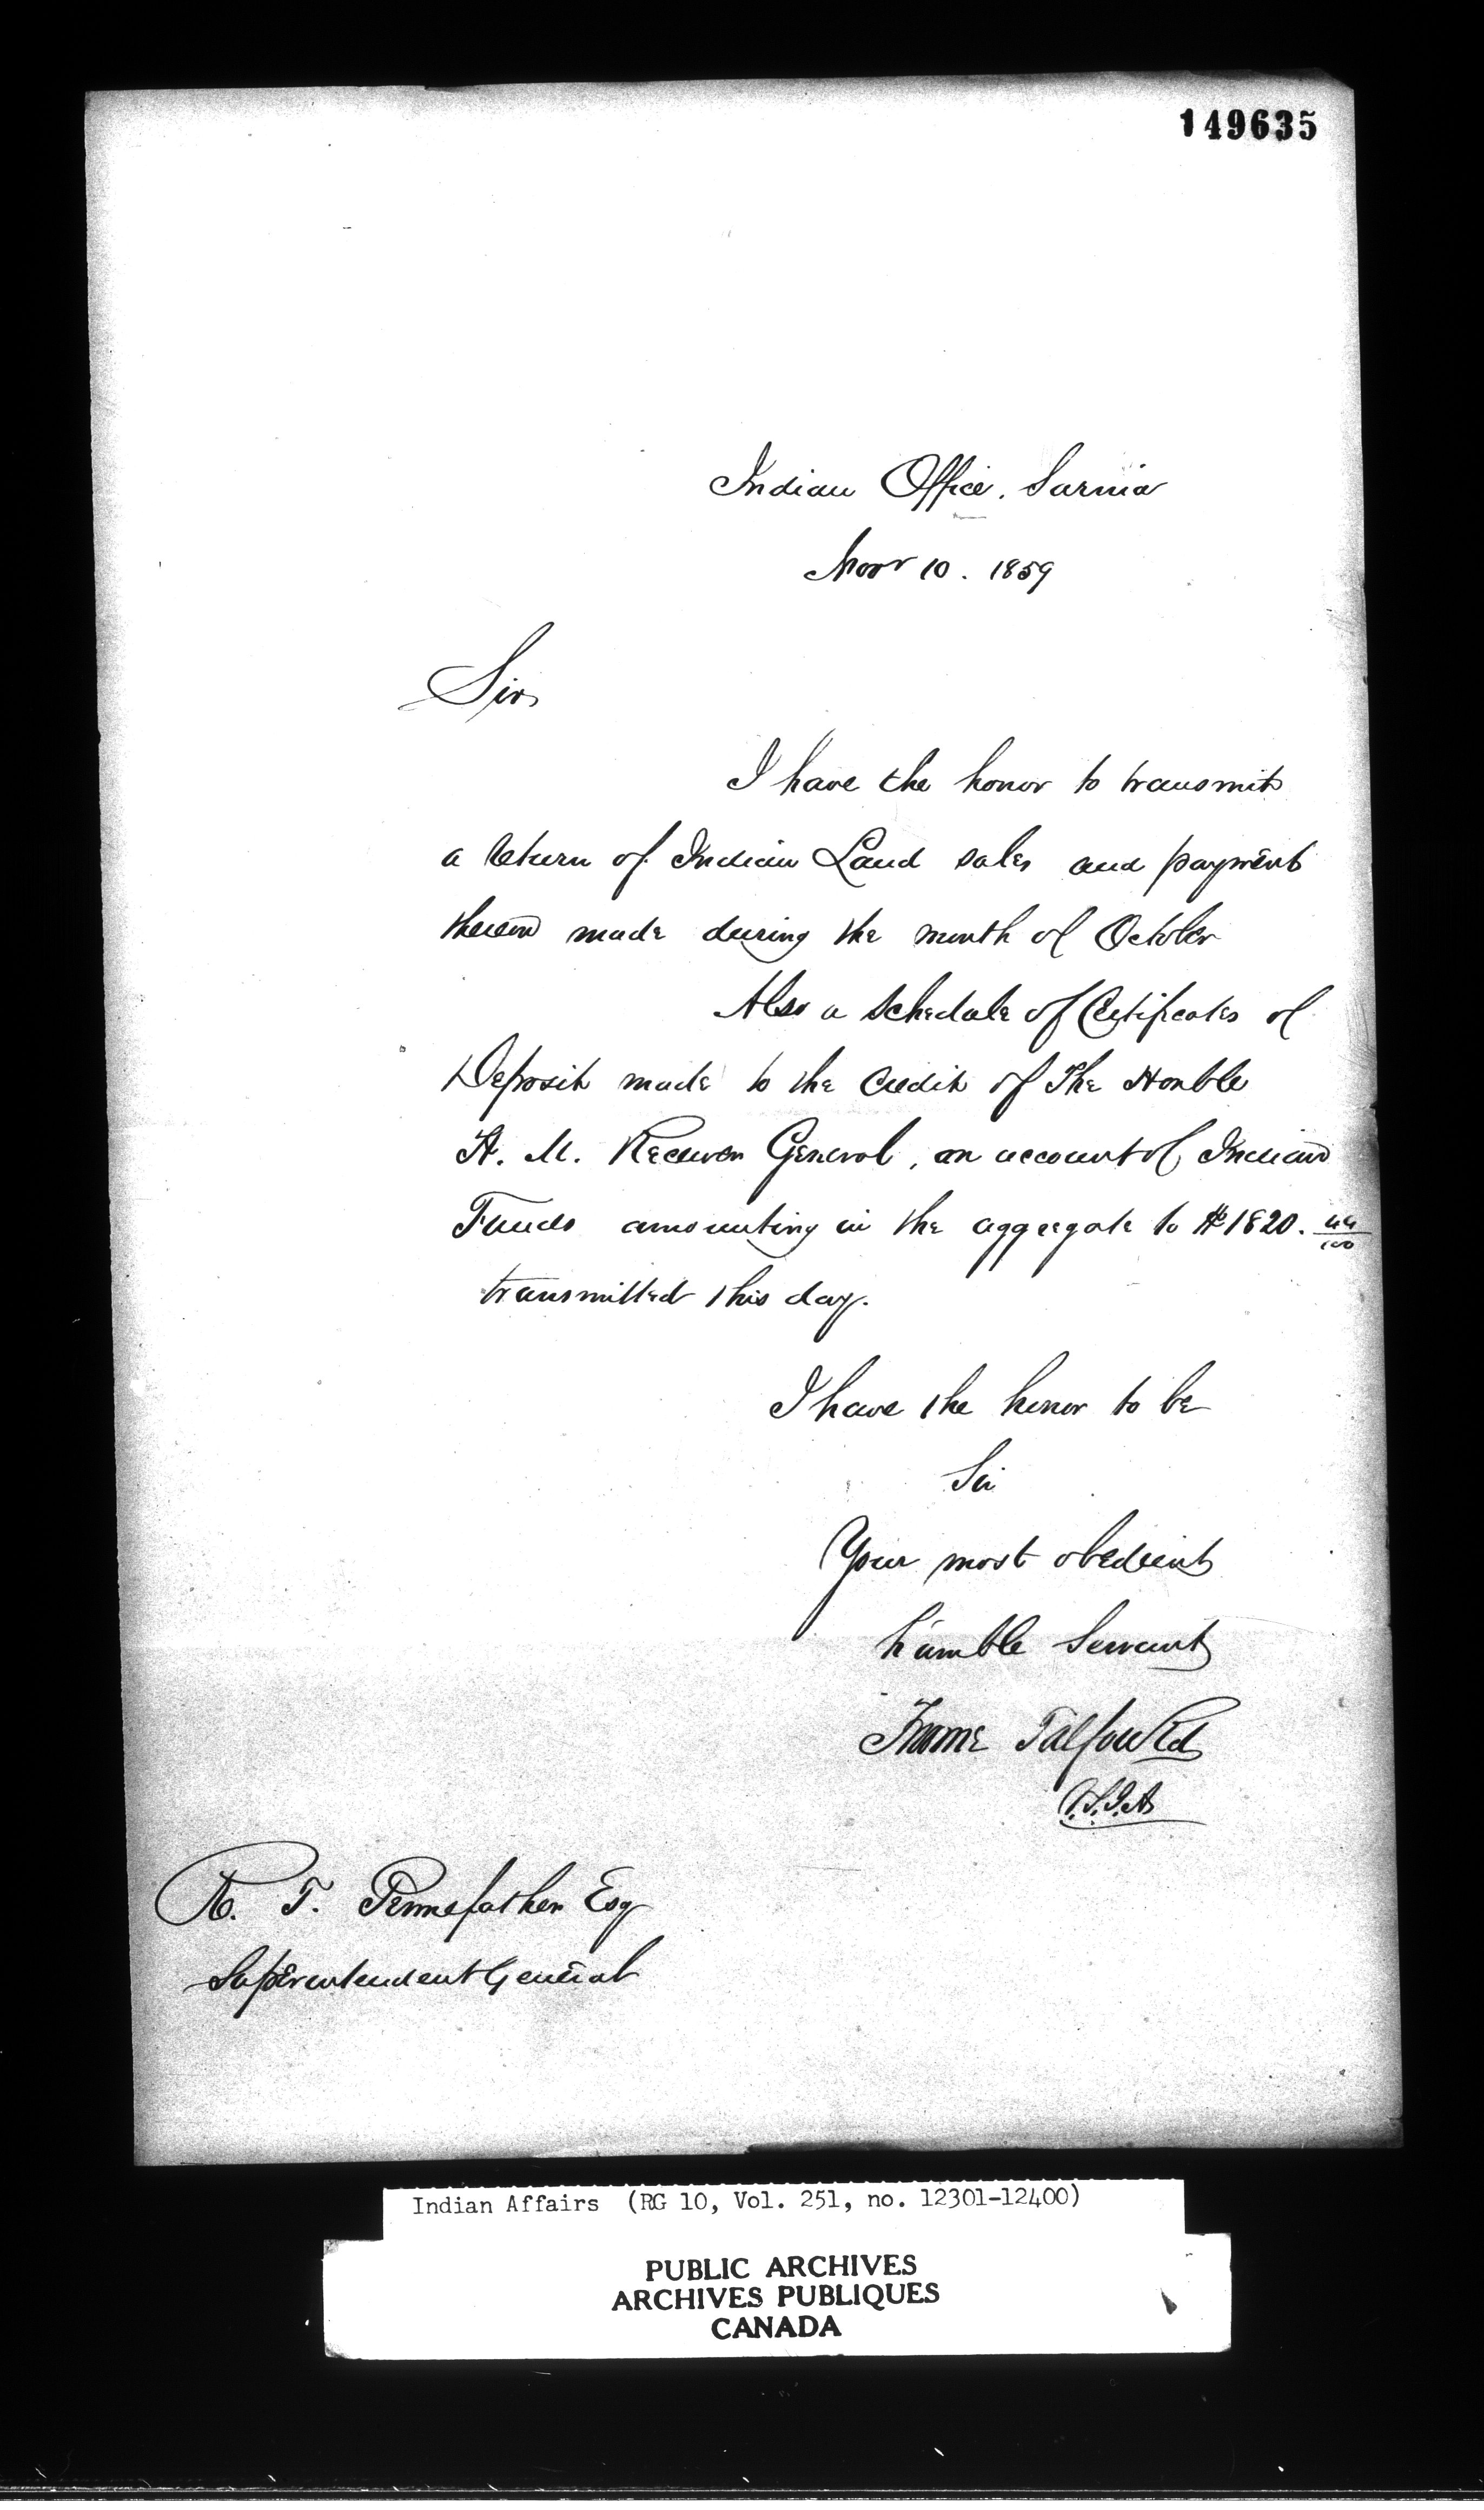 149635
Indian Office. Sarnia
Novr 10. 1859
Sir,
I have the honor to transmit
a return of Indian Land sales and payments
thereon made during the month of October
Also a Schedule of Certificates of
Deposit made to the credit of The Honble
H. M. Receiver General, on account of Indian
Funds amounting in the aggregate to $1820. 44/100
transmitted this day.
I have the honor to be
Sir
Your most obedient
humble Servant
Froome Talfourd
V.S.I.A
R. T. Pennefather Esq
Superintendent General
Indian Affairs (RG 10, Vol. 251, no. 12301-12400)
PUBLIC ARCHIVES
ARCHIVES PUBLIQUES
CANADA